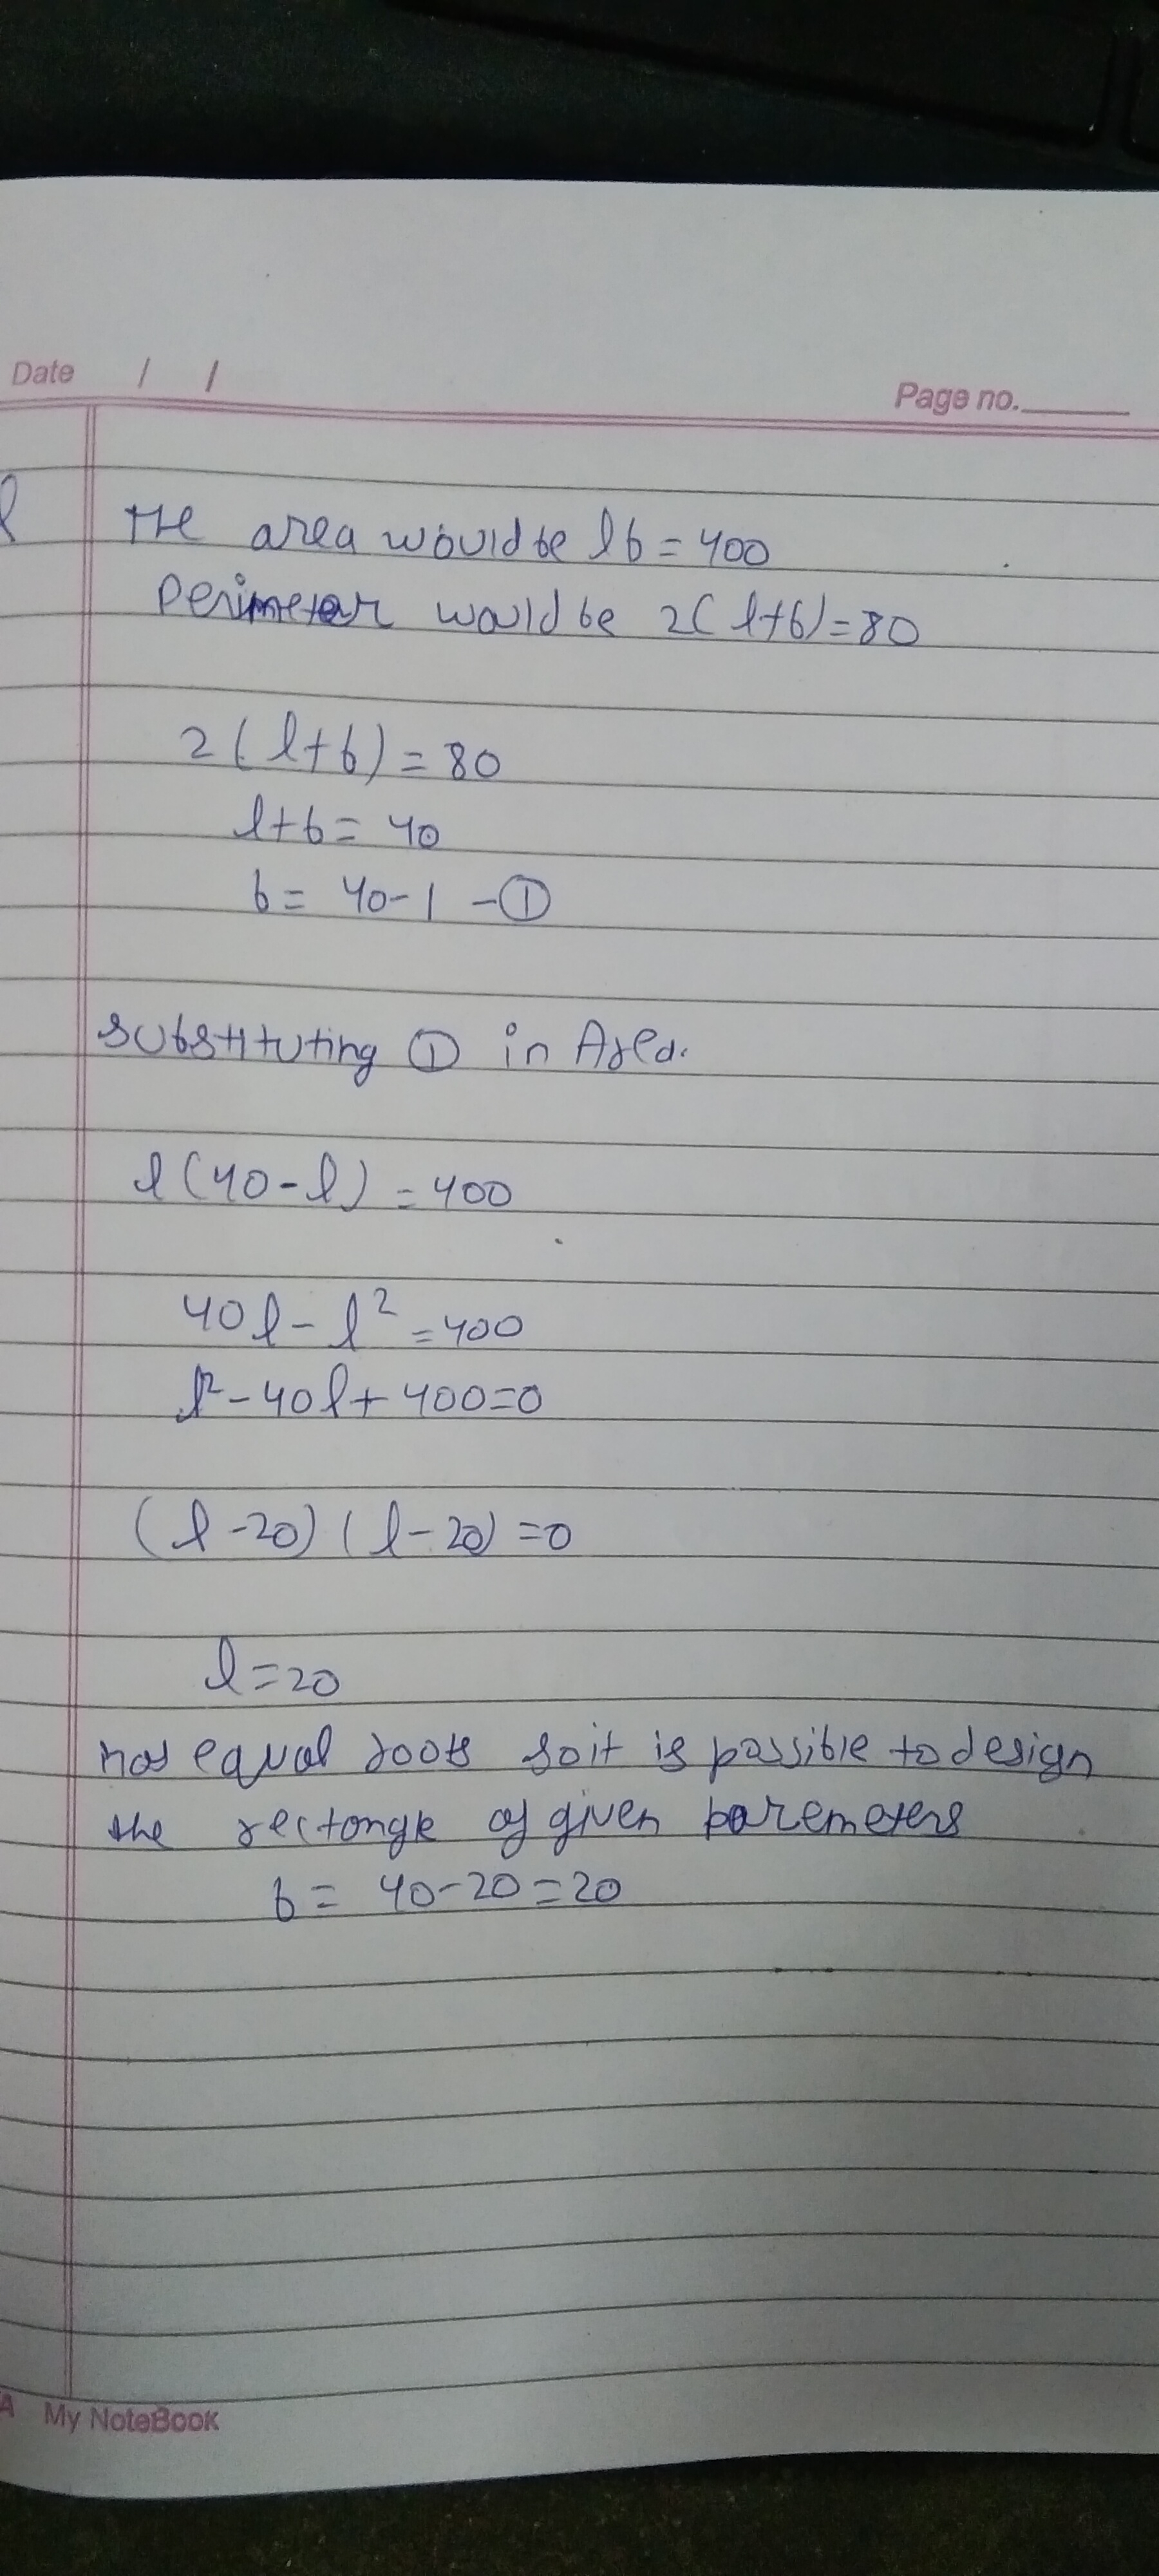 Date / /
Page no.
The area would be lb = 400
Perimeter would be 2(l+b)=80
2(l+b) = 80
l+b = 40
b = 40-l -①
substituting ① in Area.
l(40-l) = 400
40l - l² = 400
l² - 40l + 400=0
(l-20)(l-20) =0
l=20
has equal roots so it is possible to design
the rectongle of given paremeters
b = 40-20=20
My NoteBook